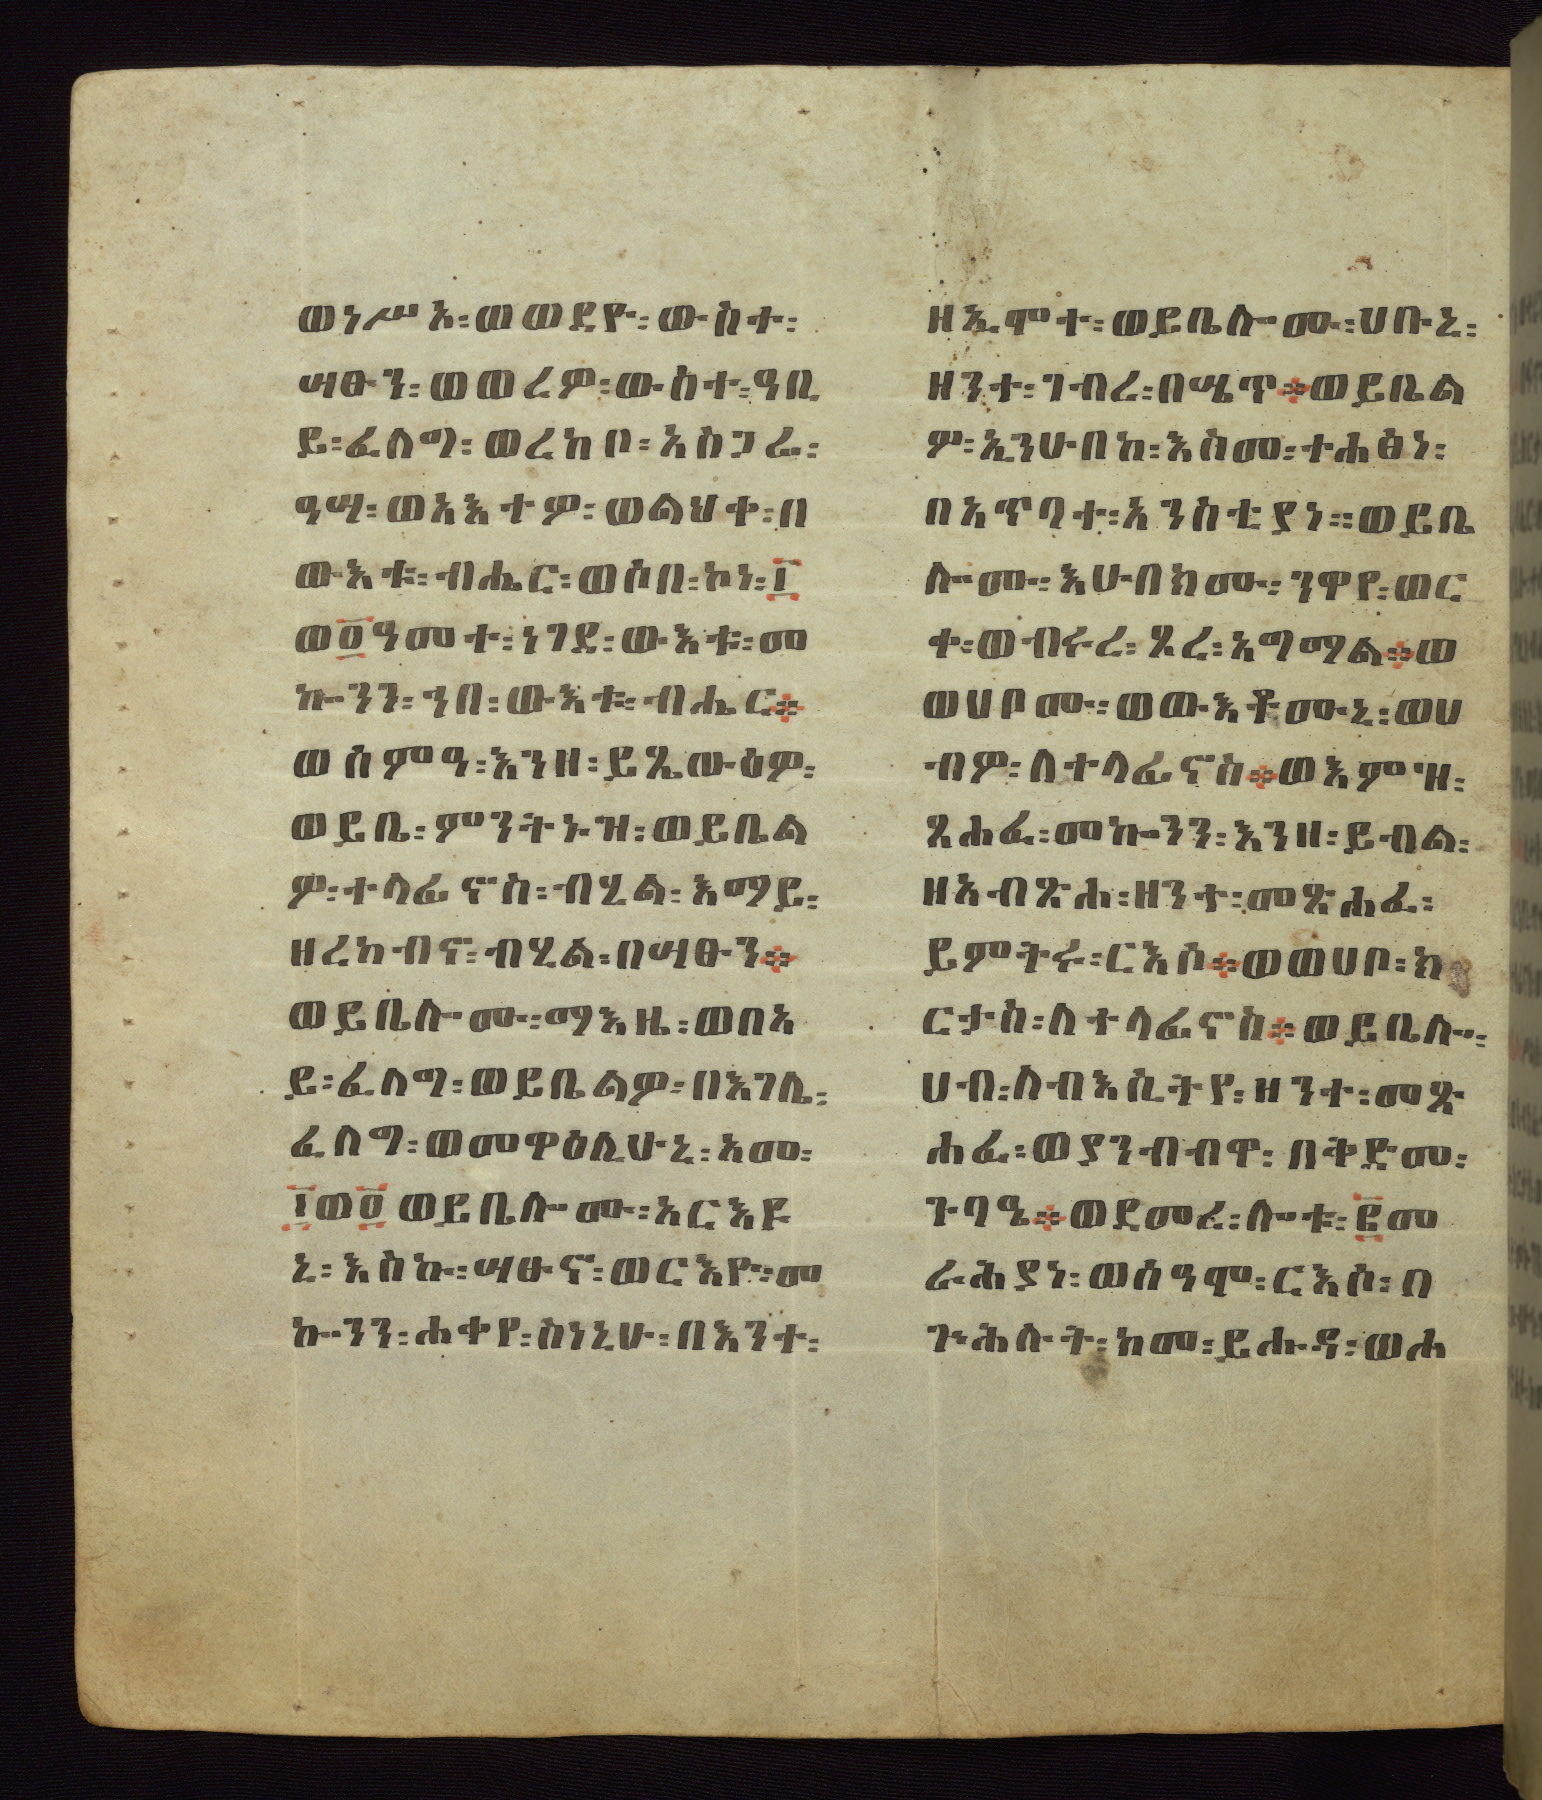 ወነሥአ፡ወወደዮ፡ውስተ፡
ሣፁን፡ወወረዎ፡ውስተ፡ዓቢ
ይ፡ፈለግ፡ወረከቦ፡አስጋሪ፡
ዓሣ፡ወአእተዎ፡ወልህቀ፡በ
ውእቱ፡ብሔር፡ወሶበ፡ኮነ፡፲
ወ፬ዓመተ፡ነገደ፡ውእቱ፡መ
ኰንን፡ኀበ፡ውእቱ፡ብሔር።
ወሰምዓ፡እንዘ፡ይጼውዕዎ፡
ወይቤ፡ምንትኑዝ፡ወይቤል
ዎ፡ተላፊኖስ፡ብሂል፡እማይ፡
ዘረከብና፡ብሂል፡በሣፁን።
ወይቤሎሙ፡ማእዜ፡ወበአ
ይ፡ፈለግ፡ወይቤልዎ፡በእገሊ፡
ፈለግ፡ወመዋዕሊሁኒ፡አመ፡
፲ወ፬ወይቤሎሙ፡አርእዩ
ኒ፡እስኩ፡ሣፁኖ፡ወርእዮ፡መ
ኰንን፡ሐቀየ፡ስነኒሁ፡በእንተ፡
ዘኢሞተ፡ወይቤሎሙ፡ሀቡኒ፡
ዘንተ፡ገብረ፡በሤጥ።ወይቤል
ዎ፡ኢንሁበከ፡እስመ፡ተሐፅነ፡
በአጥባተ፡አንስቲያነ።ወይቤ
ሎሙ፡እሁበክሙ፡ንዋየ፡ወር
ቀ፡ወብሩረ፡ጾረ፡አግማል።ወ
ወሀቦሙ፡ወውእቶሙኒ፡ወሀ
ብዎ፡ለተላፊኖስ።ወእምዝ፡
ጸሐፈ፡መኰንን፡እንዘ፡ይብል፡
ዘአብጽሐ፡ዘንተ፡መጽሐፈ፡
ይምትሩ፡ርእሶ።ወወሀቦ፡ክ
ርታስ፡ለተላፊኖስ።ወይቤሎ፡
ሀብ፡ለብእሲትየ፡ዘንተ፡መጽ
ሐፈ፡ወያንብብዋ፡በቅድመ፡
ጉባዔ።ወደመረ፡ሎቱ፡፪መ
ራሕያነ፡ወሰዓሞ፡ርእሶ፡በ
ጕሕሉት፡ከመ፡ይሑዳ፡ወሐ